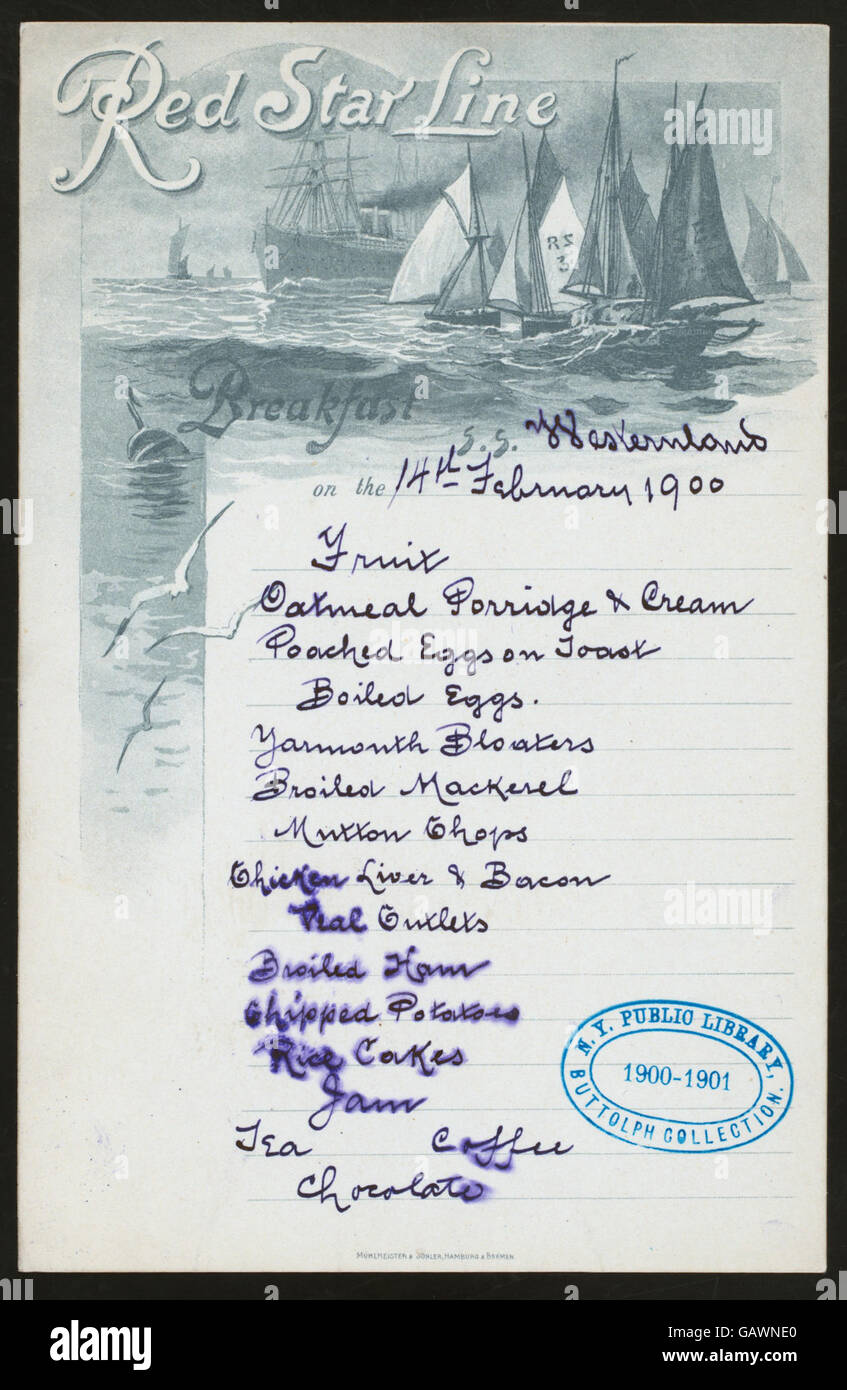 Red Star Line
RS
3
Breakfast
S.S. Westernland
on the 14th February 1900
Fruit
Oatmeal Porridge & Cream
Poached Eggs on Toast
Boiled Eggs.
Yarmouth Bloaters
Broiled Mackerel
Mutton Chops
Chicken Liver & Bacon
Veal Cutlets
Broiled Ham
Chipped Potatoes
Rice Cakes
Jam
Tea Coffee
Chocolate
N. Y. PUBLIC LIBRARY,
1900-1901
BUTTOLPH COLLECTION.
MÜHLMEISTER & JOHLER, HAMBURG & BREMEN.
alamy
a
alamy stock photo
GAWNE0
www.alamy.com